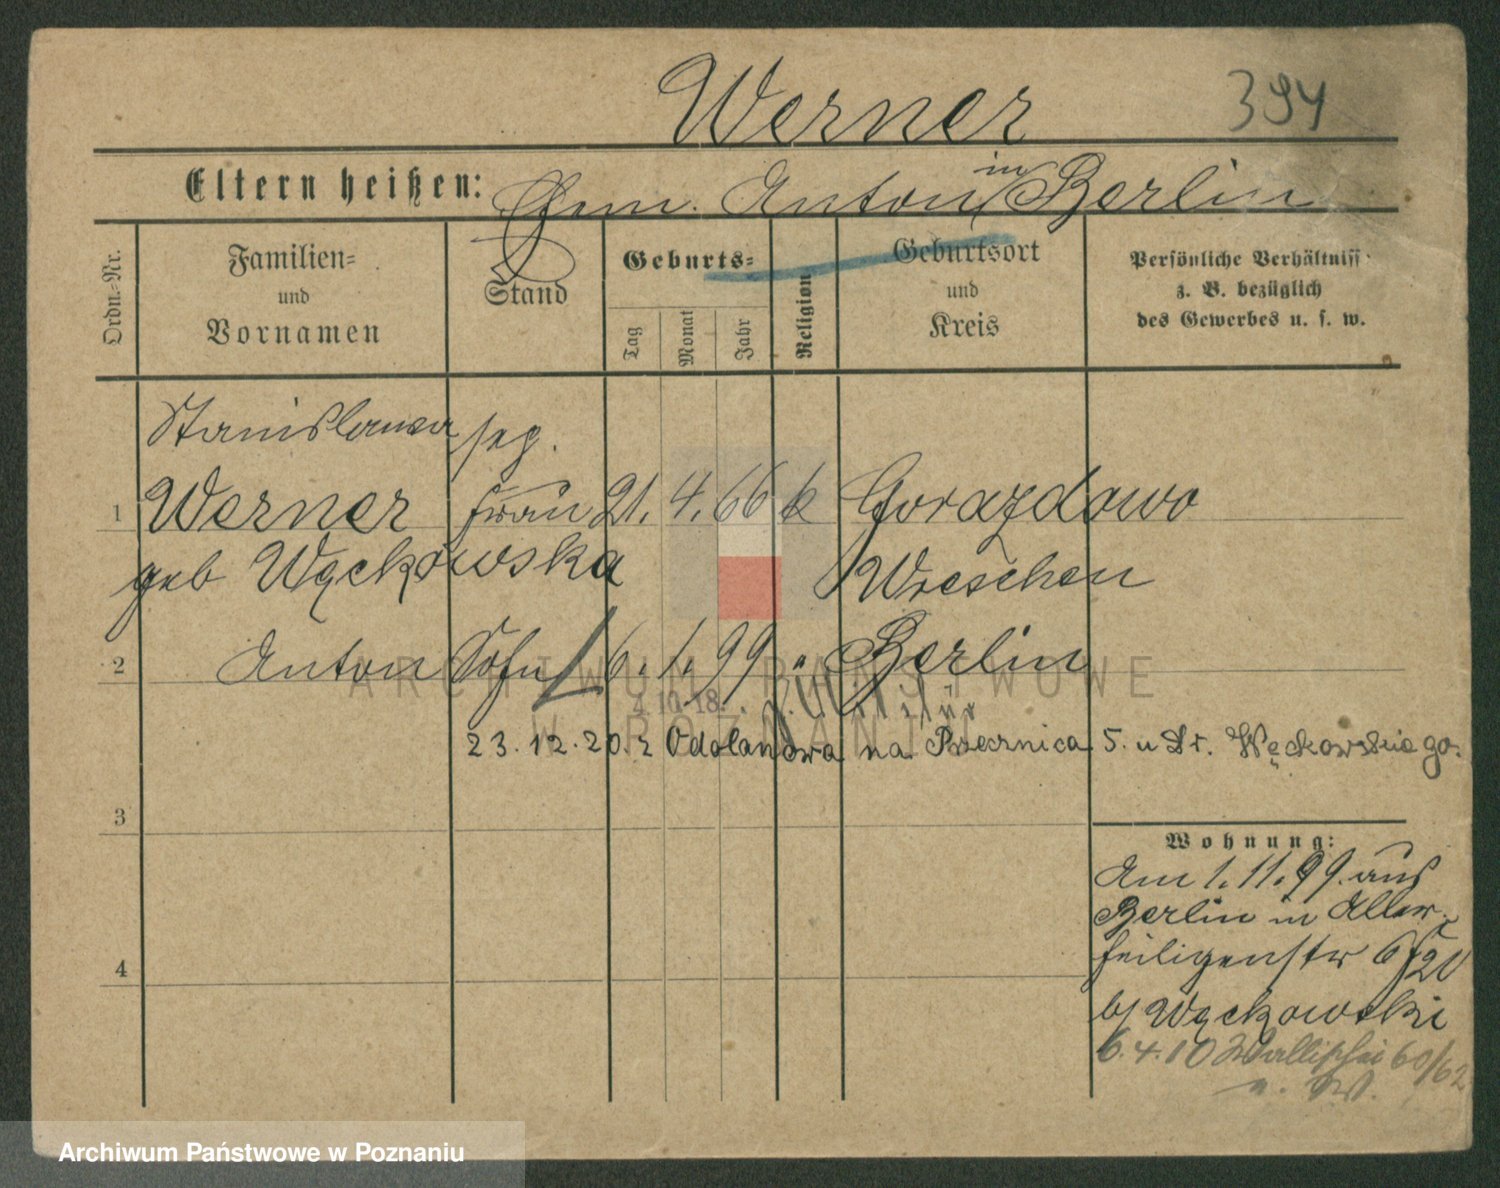 Werner 394
Eltern heißen: Ehem. Anton in Berlin
Ordn.-Nr.
Familien=
und
Vornamen
Stand
Geburts=
Tag Monat Jahr
Religion
Geburtsort
und
Kreis
Persönliche Verhältniss
z. B. bezüglich
des Gewerbes u. s. w.
Stanislawa sep.
1 Werner Frau 21. 4. 66 k Gorazdowo
geb Węckowska Wreschen
2 Anton Sohn 6. 1. 99 " Berlin
4. 10. 18.
23.12.20. z Odolanowa na Piecznica S. u St. Węckowskiego.
3
4
Wohnung:
Am 1.11.99. aus
Berlin in Aller-
heiligenstr 6
b/ Węckowski
6.4.10 Wallischei 60/62
ARCHIWUM PAŃSTWOWE
W POZNANIU
Archiwum Państwowe w Poznaniu